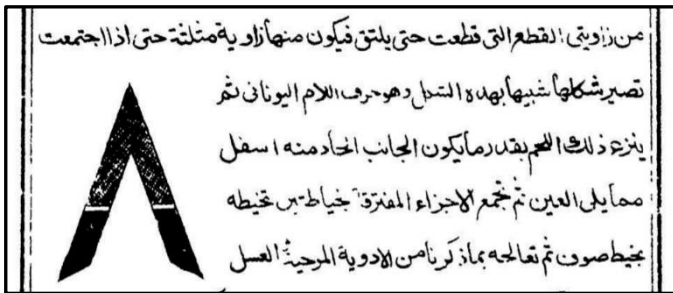 من زاويتى القطع التى قطعت حتى يلتق فيكون منها زاوية مثلثة حتى اذا اجتمعت
تصير شكلها شبيها بهذه الشكل وهو حرف اللام اليونانى ثم
ينزع ذلك اللحم بقدر ما يكون الجانب الحاد منه اسفل
مما يلى العين ثم تجمع الاجزاء المفترقة بخياطتين تخيطه
بخيط صوف ثم تعالجه بماذكرنا من الادوية المرخية العسل